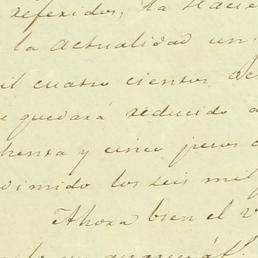 referidos, la Hacie
la actualidad un
il cuatro cientos oc
e quedará reducido a
henta y cinco pesos c
dimido los seis mil
Ahora bien el v